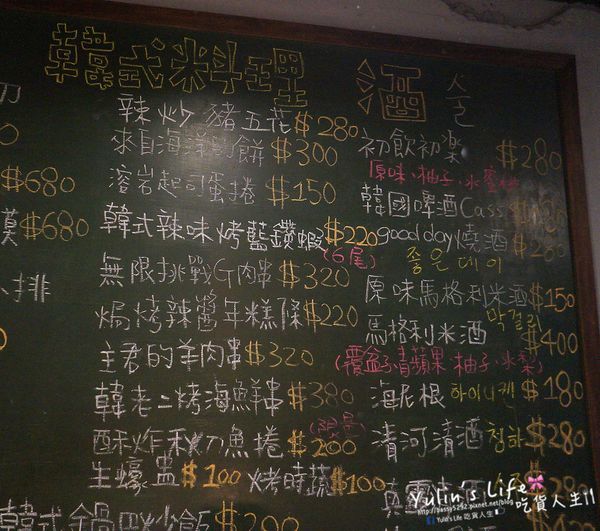 韓式料理
辣炒豬五花$280
來自海洋的餅$300
溶岩起司蛋捲$150
韓式辣味烤藍鑽蝦$220
(6尾)
無限挑戰G肉串$320
焗烤辣醬年糕條$220
主君的羊肉串$320
韓老二烤海鮮串$380
酥炸秋刀魚捲$200
生蠔盅$100 烤時蔬$100
韓式全鍋四炒飯$200
$680
$680
排
酒 술
初飲初樂 $280
原味、柚子、水蜜桃
韓國啤酒Cass
good day燒酒$280
좋은데이
原味馬格利米酒$150
막걸리
馬格利米酒 $400
(覆盆子青蘋果 柚子、水梨)
海尼根 하이네켄 $180
清河清酒 청하 $280
Yulin's Life
吃貨人生!!
http://bassy5292.pixnet.net/blog
Yulin's Life 吃貨人生